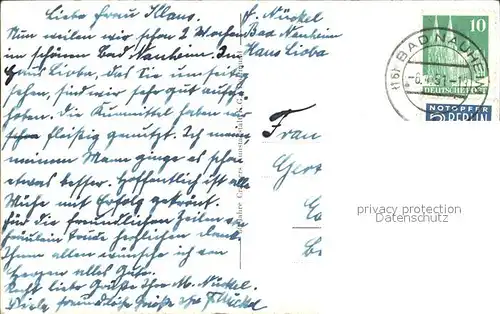 Liebe Frau Klaus.
Nun weilen wir schon 2 Wochen
im schönen Bad Nauheim. Im
Haus Lioba, das Sie uns seitig
sehen, sind wir sehr gut aufge-
hoben. Die Kurmittel haben wir
schon fleißig genutzt. Ich meine
meinem Mann ginge es schon
etwas besser. Hoffentlich ist alle
Mühe mit Erfolg gekrönt.
Für die freundlichen Zeilen von
Fräulein Trude herzlichen Dank.
Ihnen allen wünsche ich von
Herzen alles Gute.
Recht liebe Grüße Ihre M. Nückel.
Viele freundliche Grüße F. Nückel
F. Nückel
Bad Nauheim
Haus Lioba
Frau
Gert
10
DEUTSCHE POST
NOTOPFER
2 BERLIN
(16) BAD NAUHEIM
privacy protection
Datenschutz